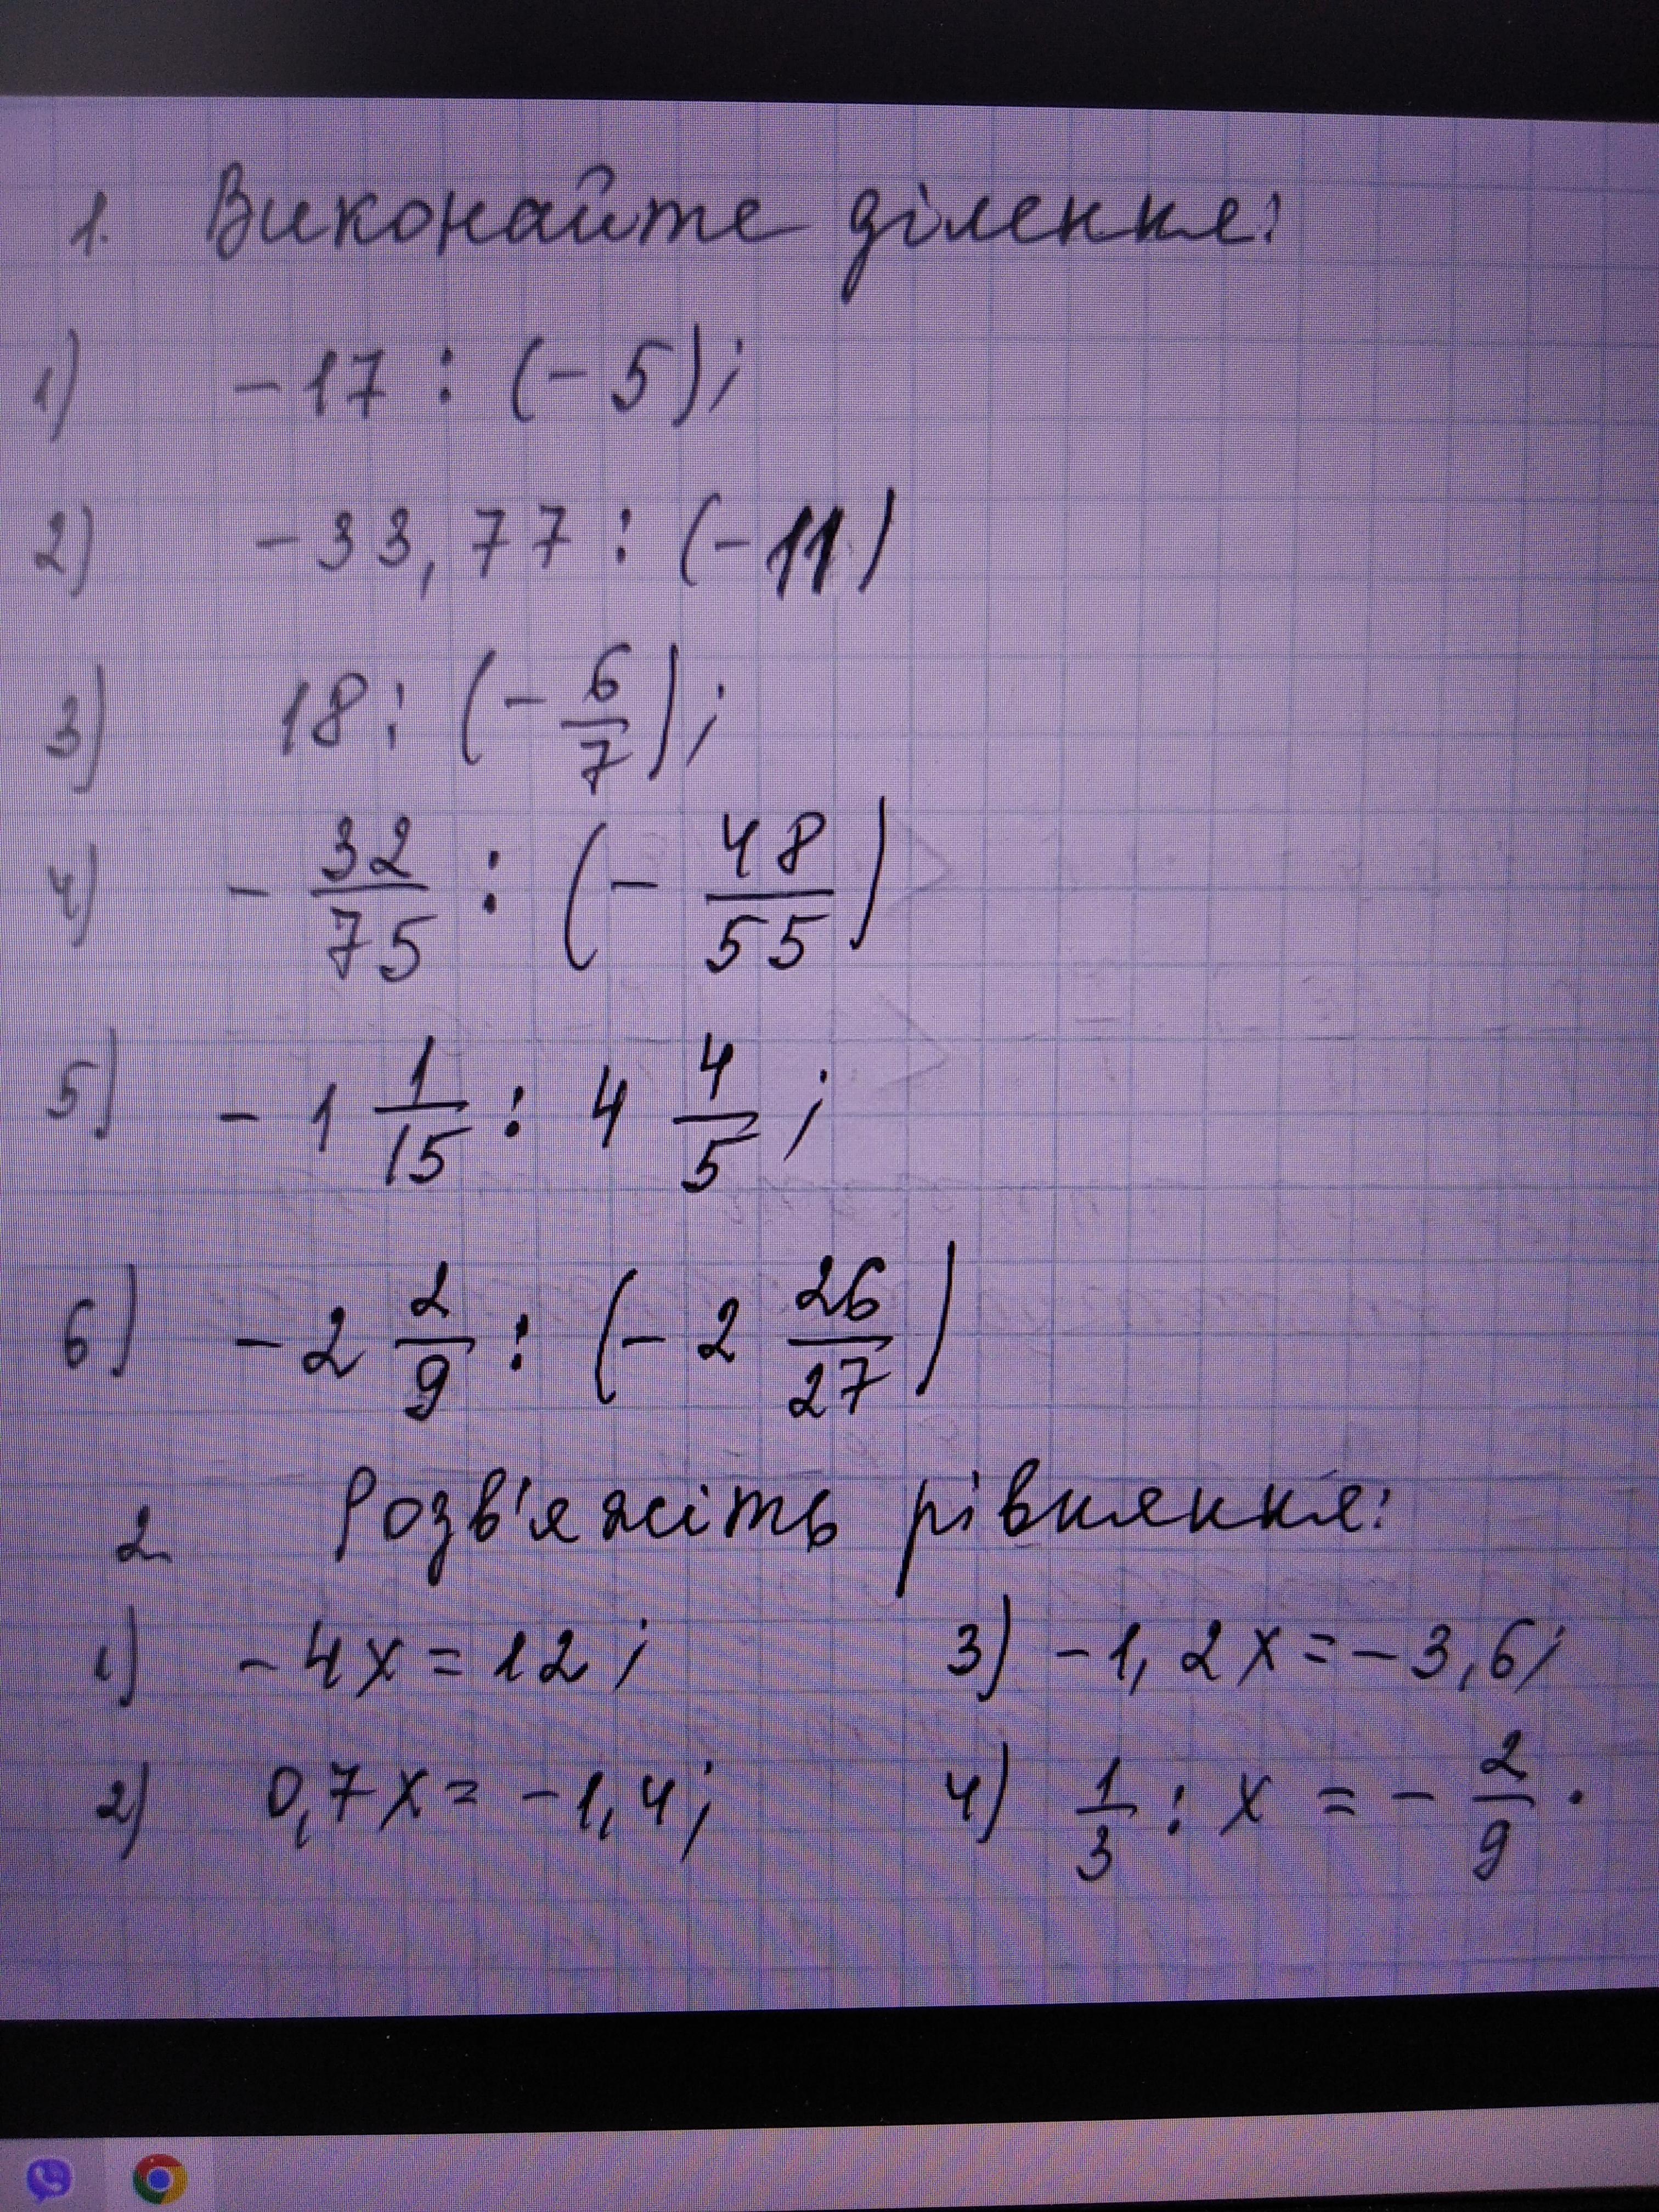 1. Виконайте ділення:
1) -17 : (-5);
2) -33,77 : (-11)
3) 18 : (-6/7);
4) -32/75 : (-48/55)
5) -1 1/15 : 4 4/5;
6) -2 2/9 : (-2 26/27)
2. Розв'яжіть рівняння:
1) -4x = 12; 3) -1,2x = -3,6;
2) 0,7x = -1,4; 4) 1/3 : x = -2/9.